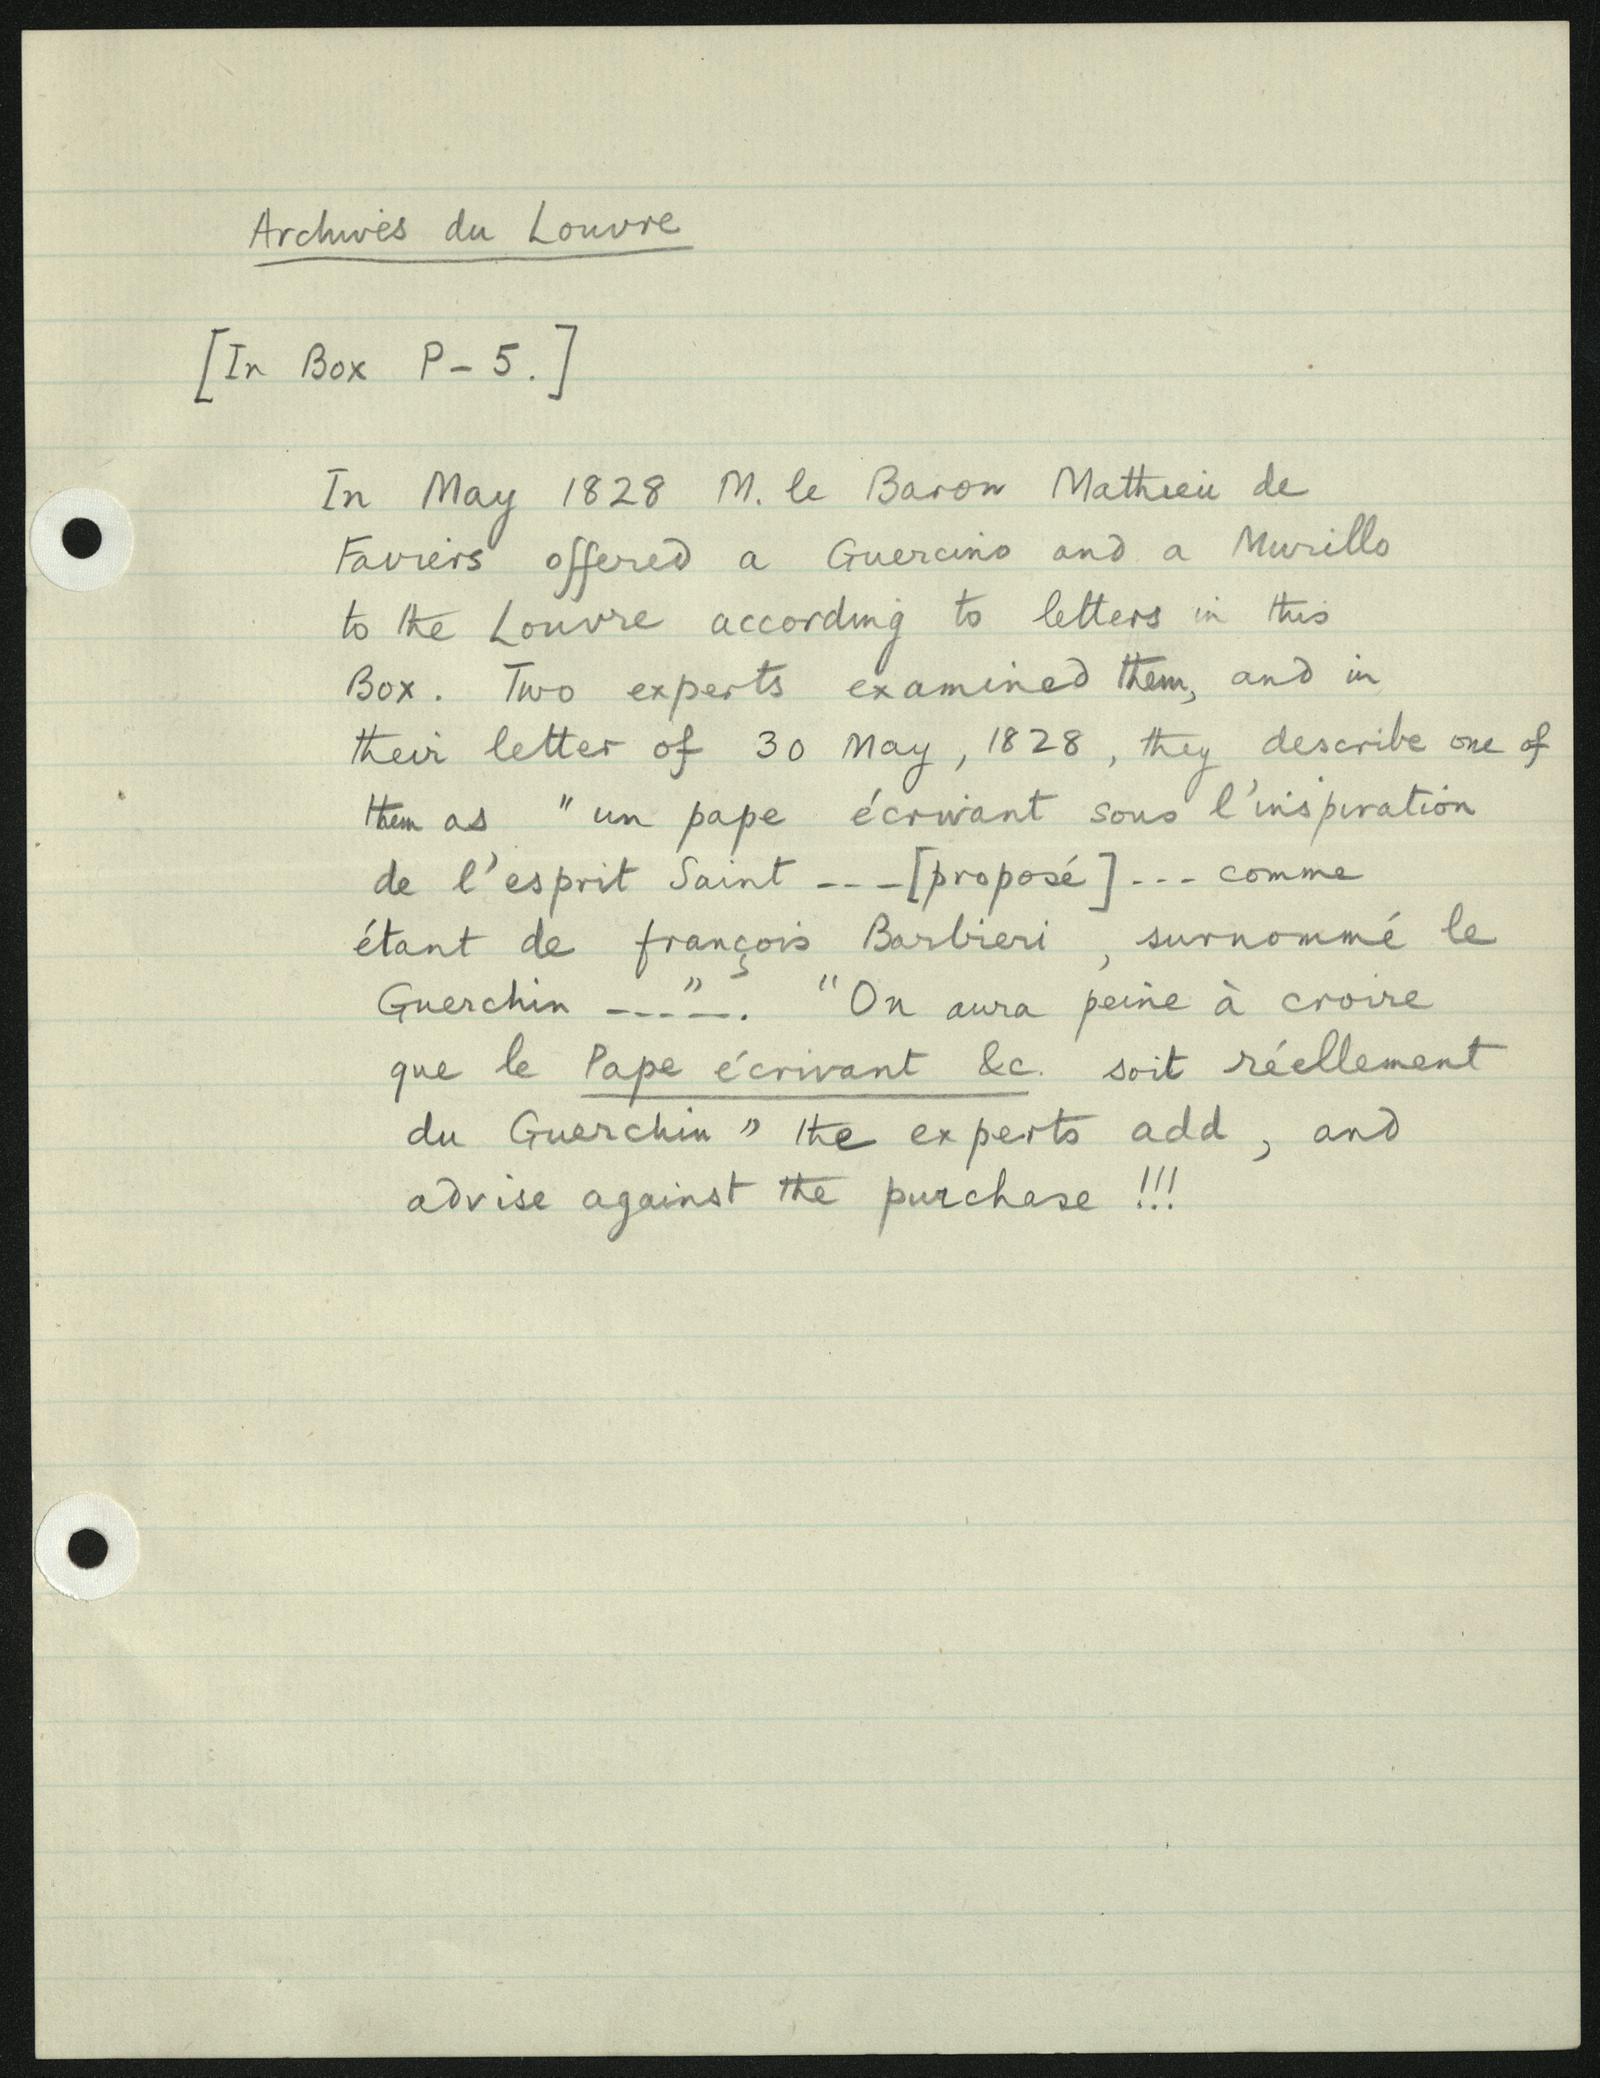 Archives du Louvre
[In Box P-5.]
In May 1828 M. le Baron Mathieu de
Faviers offered a Guercino and a Murillo
to the Louvre according to letters in this
Box. Two experts examined them, and in
their letter of 30 May, 1828, they describe one of
them as "un pape écrivant sous l'inspiration
de l'esprit Saint ---[proposé]--- comme
étant de françois Barbieri, surnommé le
Guerchin ---"-. "On aura peine à croire
que le Pape écrivant &c. soit réellement
du Guerchin" the experts add, and
advise against the purchase !!!